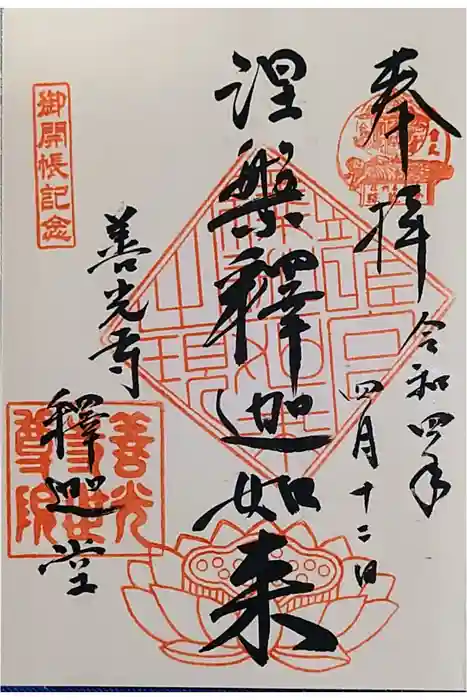 奉拝
令和四年
四月十二日
涅槃釋迦如来
善光寺
釋迦堂
御開帳記念
善光
尊院